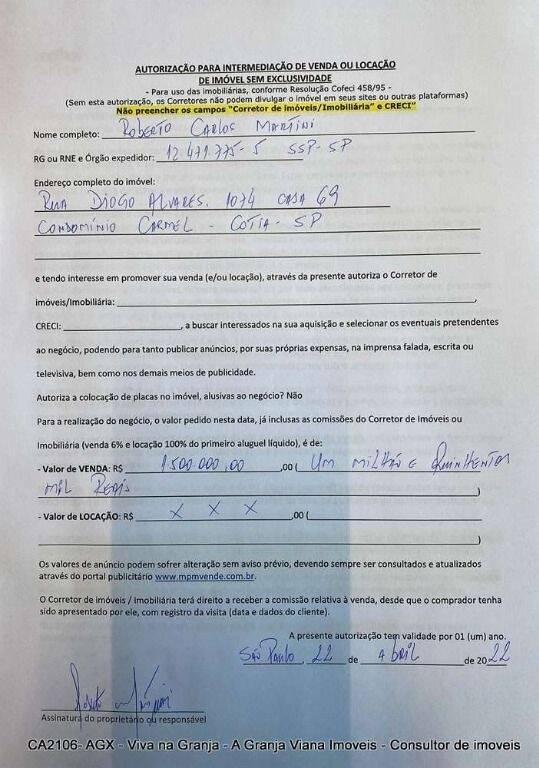 AUTORIZAÇÃO PARA INTERMEDIAÇÃO DE VENDA OU LOCAÇÃO
DE IMÓVEL SEM EXCLUSIVIDADE
- Para uso das imobiliárias, conforme Resolução Cofeci 458/95 -
(Sem esta autorização, os Corretores não podem divulgar o imóvel em seus sites ou outras plataformas)
Não preencher os campos "Corretor de imóveis/Imobiliária" e CRECI"
Nome completo: ROBERTO CARLOS MARTINI
RG ou RNE e Órgão expedidor: 12 471.775-5 SSP-SP
Endereço completo do imóvel:
RUA DIOGO ÁLVARES. 1074 CASA 69
CONDOMÍNIO CARMEL - COTIA - SP
e tendo interesse em promover sua venda (e/ou locação), através da presente autoriza o Corretor de
imóveis/Imobiliária: ,
CRECI: , a buscar interessados na sua aquisição e selecionar os eventuais pretendentes
ao negócio, podendo para tanto publicar anúncios, por suas próprias expensas, na imprensa falada, escrita ou
televisiva, bem como nos demais meios de publicidade.
Autoriza a colocação de placas no imóvel, alusivas ao negócio? Não
Para a realização do negócio, o valor pedido nesta data, já inclusas as comissões do Corretor de Imóveis ou
Imobiliária (venda 6% e locação 100% do primeiro aluguel líquido), é de:
- Valor de VENDA: R$ 1.500.000,00 ,00 ( UM MILHÃO E QUINHENTOS
MIL REAIS )
- Valor de LOCAÇÃO: R$ X X X ,00 (
)
Os valores de anúncio podem sofrer alteração sem aviso prévio, devendo sempre ser consultados e atualizados
através do portal publicitário www.mpmvende.com.br.
O Corretor de imóveis / Imobiliária terá direito a receber a comissão relativa à venda, desde que o comprador tenha
sido apresentado por ele, com registro da visita (data e dados do cliente).
A presente autorização tem validade por 01 (um) ano.
SÃO PAULO, 22 de Abril de 2022
Assinatura do proprietário ou responsável
CA2106- AGX - Viva na Granja - A Granja Viana Imoveis - Consultor de imoveis